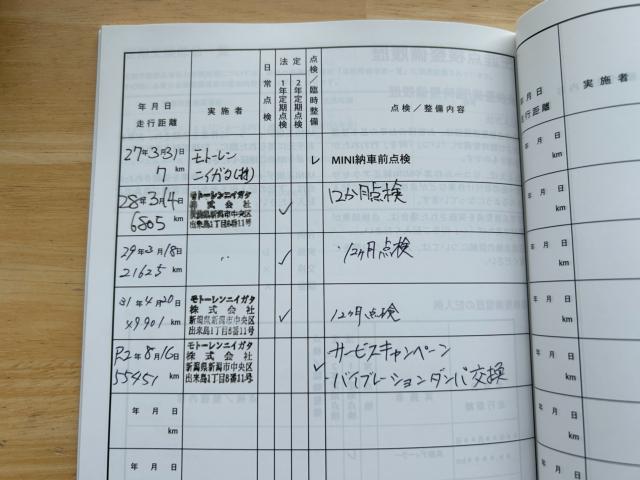 年 月 日
走行距離
実施者
日常点検
法定
1年定期点検
2年定期点検
点検/臨時整備
点検/整備内容
27年3月31日
7 km
モトーレン
ニイガタ(株)
✓
MINI納車前点検
28年3月14日
6805 km
モトーレンニイガタ
株式会社
新潟県新潟市中央区
出来島1丁目6番11号
✓
12か月点検
29年3月18日
21625 km
〃
✓
12ヶ月点検
31年4月20日
49901 km
モトーレンニイガタ
株式会社
新潟県新潟市中央区
出来島1丁目6番11号
✓
12ヶ月点検
R2年8月16日
55451 km
モトーレンニイガタ
株式会社
新潟県新潟市中央区
出来島1丁目6番11号
✓
サービスキャンペーン
バイブレーションダンパ交換
年 月 日
km
年 月 日
年 月 日
走行距離
実施者
年 月 日
km
年 月 日
km
年 月 日
km
年 月 日
km
年 月 日
km
年 月 日
km